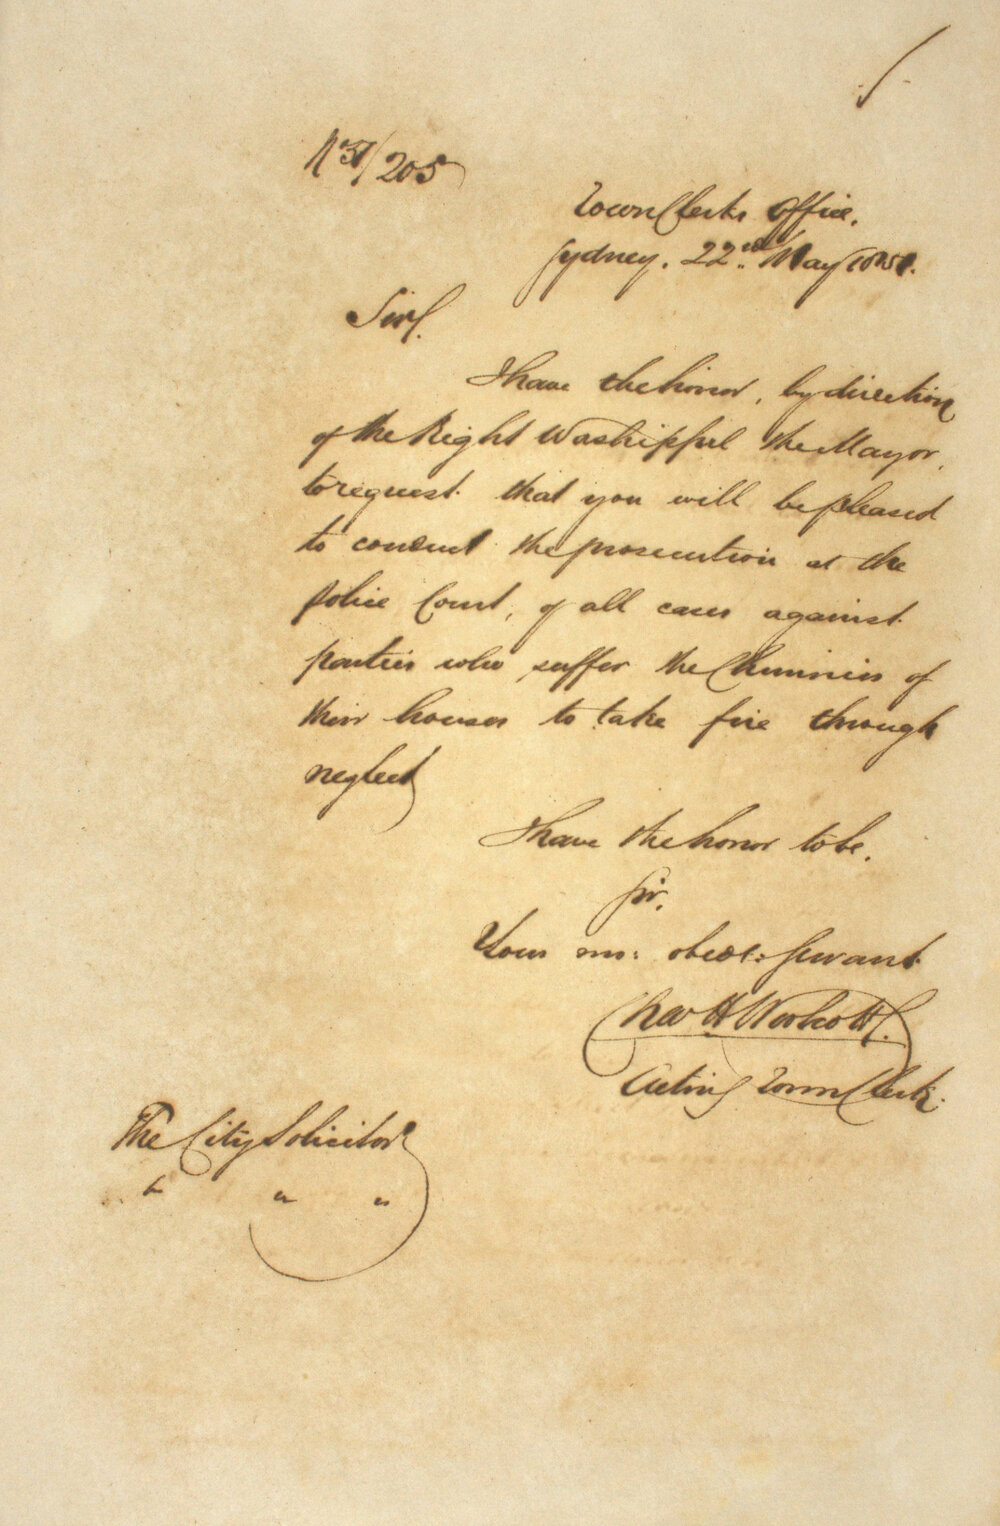 No 51/205
Town Clerks Office.
Sydney. 22nd May 1851.
Sir,
I have the honor, by direction
of the Right Worshipful the Mayor,
to request that you will be pleased
to conduct the prosecution at the
Police Court, of all cases against
parties who suffer the Chimnies of
their houses to take fire through
neglect
I have the honor to be.
Sir.
Your mo: obedt: Servant
Chas H Woolcott.
Acting Town Clerk.
The City Solicitor
" " "